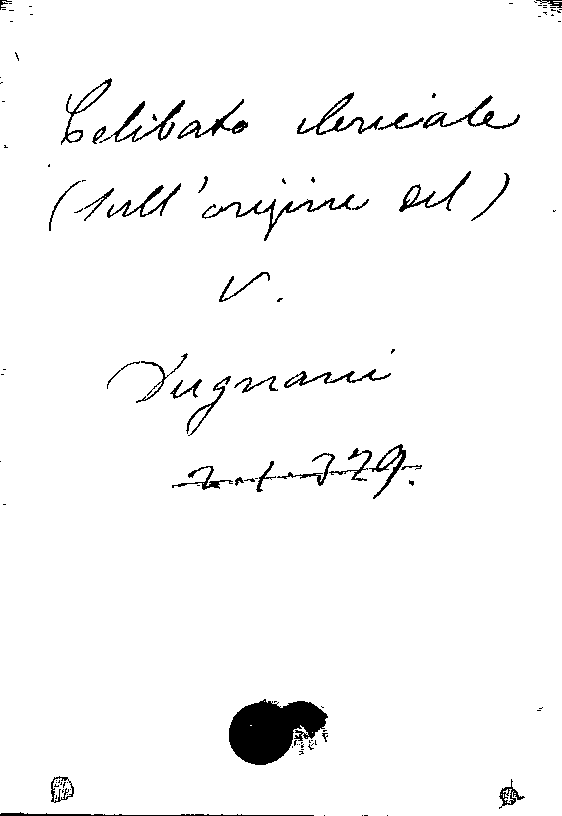 Celibato clericale
(sull'origine del)
V.
Dugnani